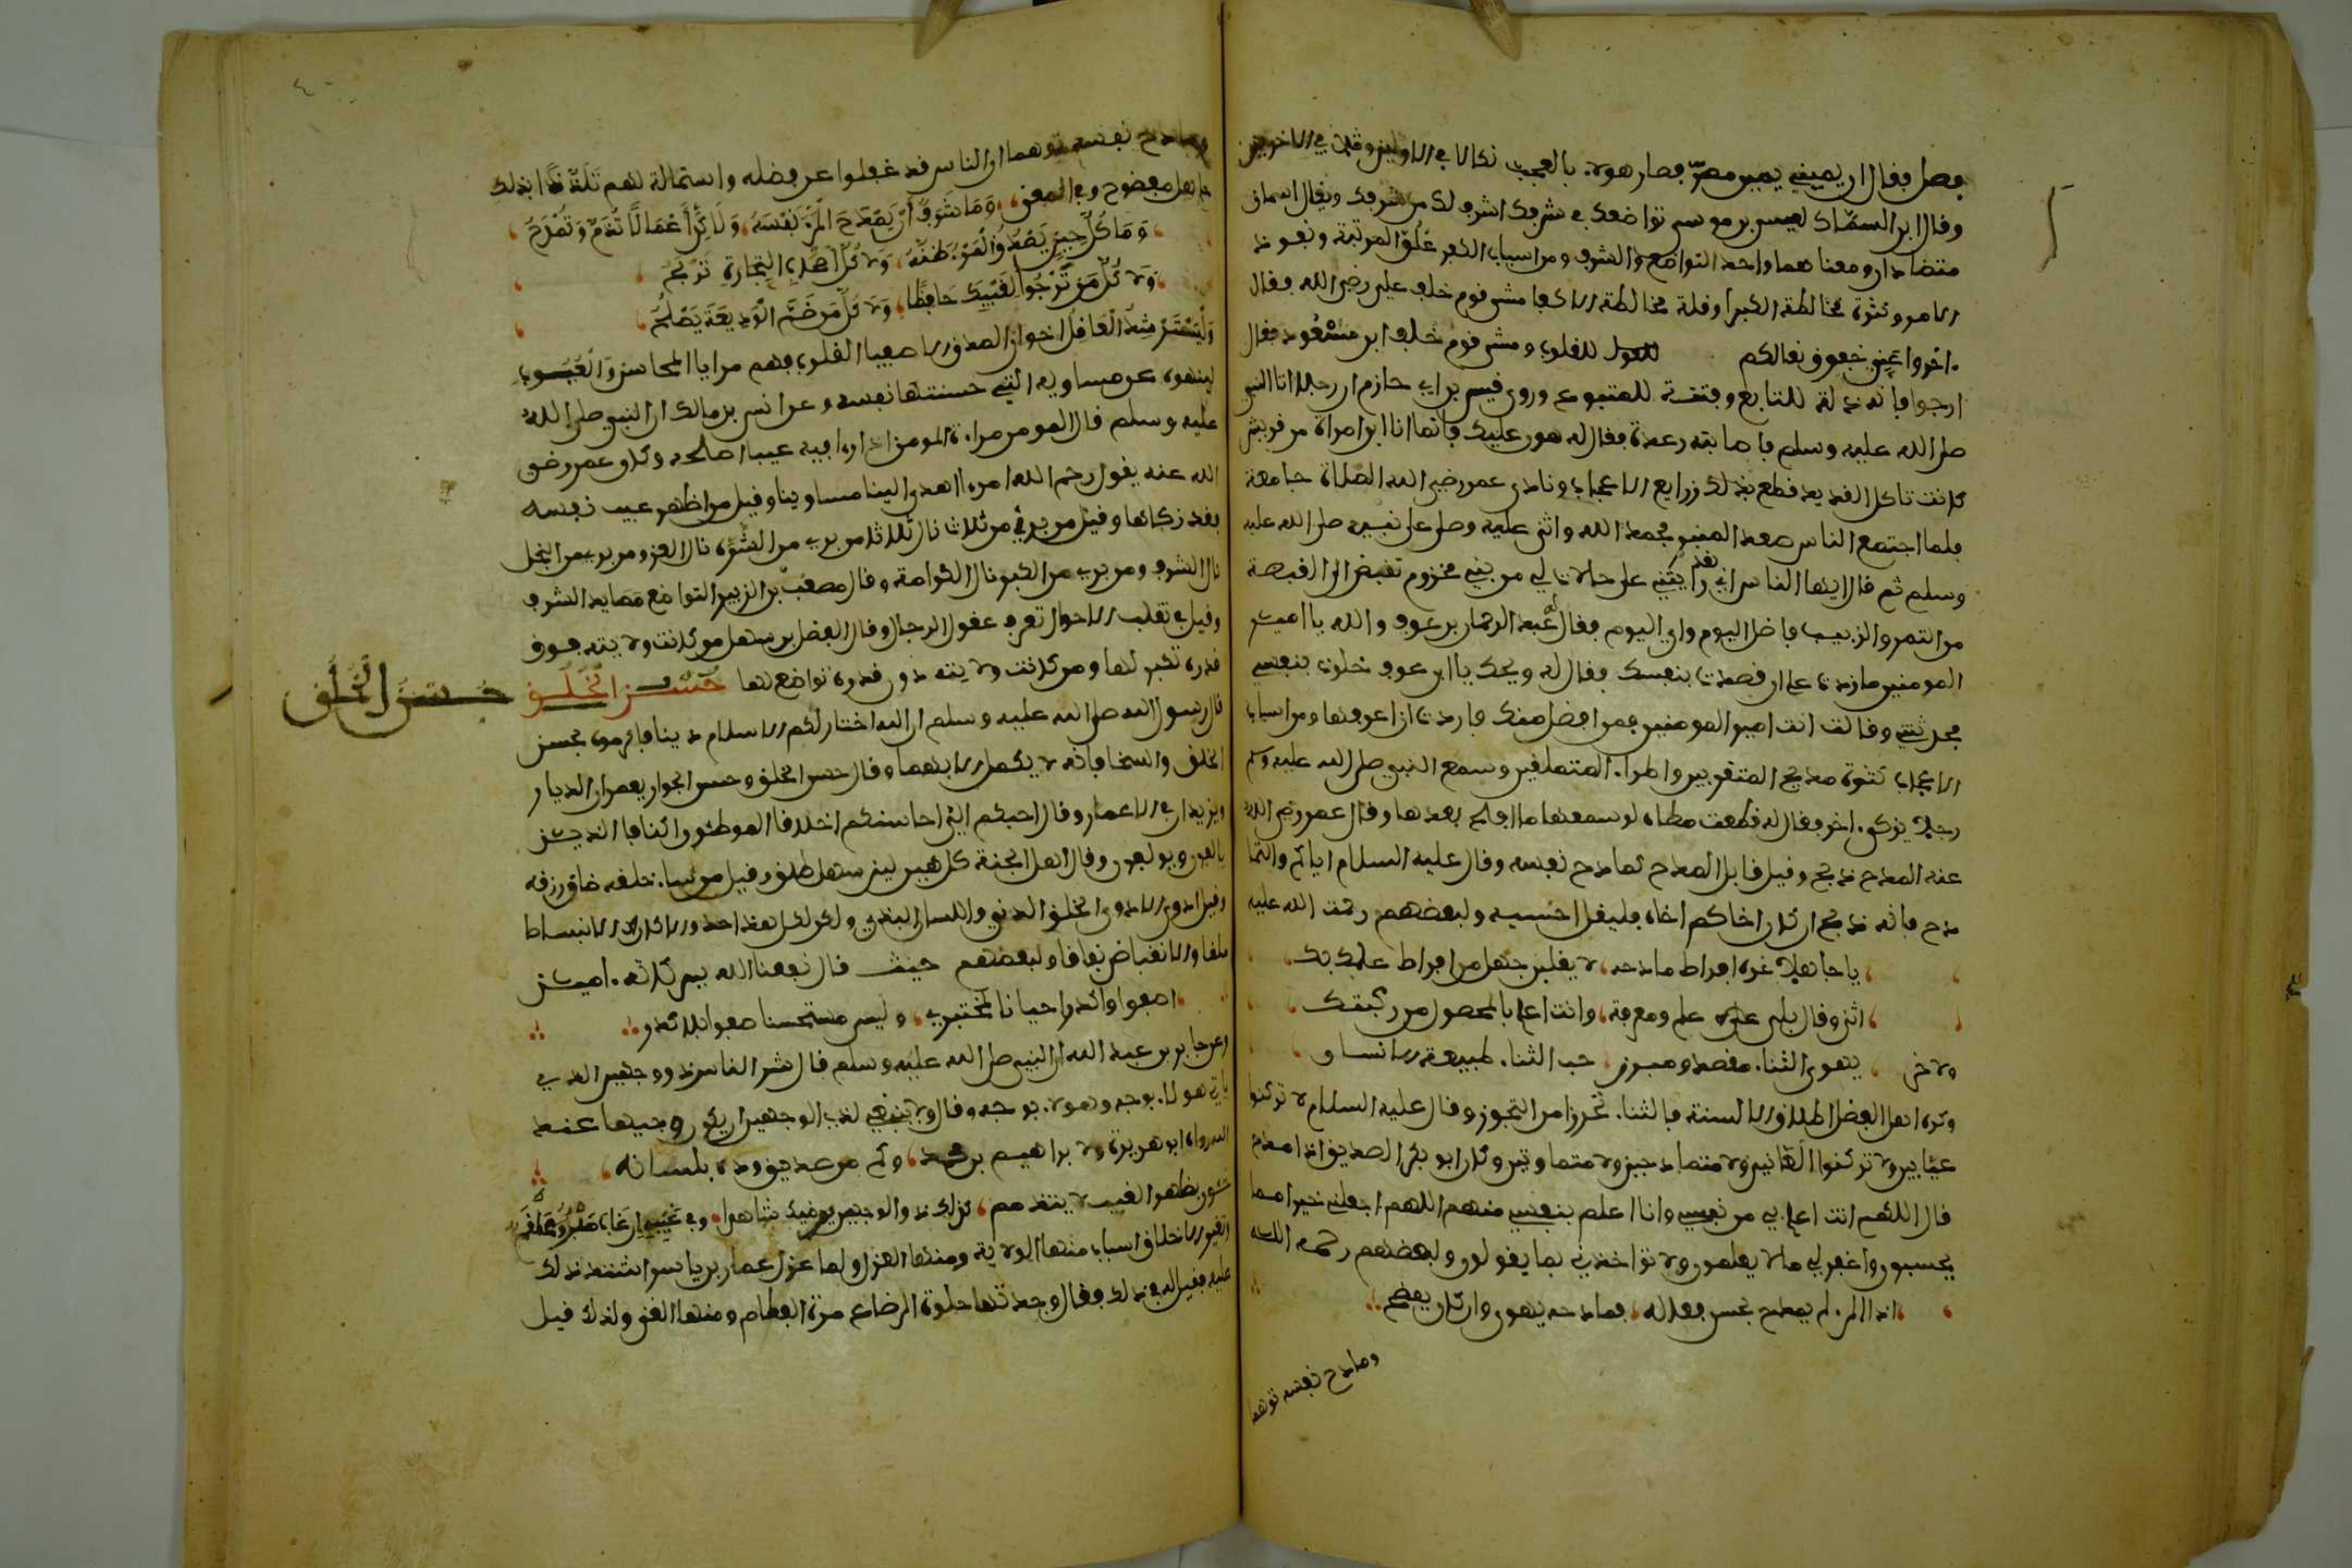 فصل فقال ان يميني يمين مصر فصار هولاء بالعجب نكالا في الاولين ومثلا في الاخرين
وقال ابن السماك لعيسى بن موسى تواضعك في شرفك اشرف لك من شرفك ويقال اسمان
متضادان ومعناهما واحد التواضع والشرف ومن اسباب الكبر علو المرتبة ونفوذ
الامر وكثرة مخالطة الكبرا وقلة مخالطة الاكفا مشى قوم خلف علي رضي الله فقال
اخروا عني خفوق نعالكم للقلوب ومشى قوم خلف ابن مسعود فقال
ارجعوا فانه ذلة للتابع وفتنة للمتبوع وروى قيس بن ابي حازم ان رجلا اتا النبي
صلى الله عليه وسلم فاصابته رعدة فقال له هون عليك فانما انا ابن امراة من قريش
كانت تاكل القديد قطع بذلك ذرايع الاعجاب ونادى عمر رضي الله الصلاة جامعة
فلما اجتمع الناس صعد المنبر فحمد الله واثنى عليه وصلى على نبيه صلى الله عليه
وسلم ثم قال ايها الناس اني لقد رايتني على خالات لي من بني مخزوم تقبض لي القبضة
من التمر والزبيب فاظل اليوم واي اليوم فقال له عبد الرحمان بن عوف والله يا امير
المومنين مازدت على ان قصدت بنفسك فقال له ويحك يا ابن عوف خلوت بنفسي
فحدثتني وقالت انت امير المومنين فمن افضل منك فاردت ان اعرفها ومن اسباب
الاعجاب كثرة مديح المتقربين واطراء المتملقين وسمع النبي صلى الله عليه وسلم
رجلا يزكي اخر فقال له قطعت مطاه لو سمعها ما افلح بعدها وقال عمر رضي الله
عنه المدح ذبح وقيل قابل المدح كمادح نفسه وقال عليه السلام اياكم والتما
دح فانه ذبح ان كان احدكم اخاه فليقل احسبه ولبعضهم رحمت الله عليه
يا جاهلا غره افراط مادحه لا يغلبن جهل من افراط علمك بك
اثنى وقال بلى علم ومعرفة وانت اعلم بالمحصول من ريبتك
ولاخر يهوى الثناء مقصر ومبرز حب الثناء طبيعة الانسان
وكره اهل الفضل اطلاق الالسنة بالثناء تحرزا من التجوز وقال عليه السلام لا تركنوا
عيابين ولا تركنوا لعانين ولا متمادحين ولا متماوتين وكان ابو بكر الصديق اذا مدح
قال اللهم انت اعلم بي من نفسي وانا اعلم بنفسي منهم اللهم اجعلني خيرا مما
يحسبون واغفر لي ما لا يعلمون ولا تواخذني بما يقولون ولبعضهم رحمه الله
اذا المرء لم يمدح بحسن فعاله فمادحه يهوى وان كان يفصح
ومادح نفسه توهما
ومادح نفسه توهما ان الناس قد غفلوا عن فضله واستمالة لهم تلقفا ابذلك
جاهل مفضوح وفي المعنى وما شرف ان يمدح المرء نفسه ولاكن اعمالا تذم وتمدح
وما كل حين يصدق المرء ظنه ولا كل اصحاب التجارة تربح
ولا كل من ترجوا لغيبك حافظا ولا كل من ضم الوديعة يصلح
وليسترشد العاقل اخوان الصدق الاصفيا القلوب فهم مرايا المحاسن والعيوب
لينبهوه عن مساويه التي حسنتها نفسه وعن انس بن مالك ان النبي صلى الله
عليه وسلم قال المومن مراة المومن اذا راى فيه عيبا اصلحه وكان عمر رضي
الله عنه يقول رحم الله امرءا اهدى الينا مساوينا وقيل من اظهر عيب نفسه
فقد زكاها وقيل من بري من ثلاث نال ثلاثا من بري من الشره نال العز ومن بري من البخل
نال الشرف ومن بري من الكبر نال الكرامة وقال مصعب بن الزبير التواضع مصايد الشرف
وقيل في تقلب الاحوال تعرف عقول الرجال وقال الفضل بن سهل من كانت ولايته فوق
قدره تكبر لها ومن كانت ولايته دون قدره تواضع لها حسن الخلق
حسن الخلق
قال رسول الله صلى الله عليه وسلم ان الله اختار لكم الاسلام دينا فاكرموه بحسن
الخلق والسخا فانه لا يكمل الا بهما وقال حسن الخلق وحسن الجوار يعمران الديار
ويزيدان في الاعمار وقال احبكم الي احاسنكم اخلاقا الموطئون اكنافا الذين
يالفون ويولفون وقال اهل الجنة كل هين لين سهل طلق وقيل من ساء خلقه ضاق رزقه
وقيل ادوى الادوى الخلق الدني واللسان البذي ولكن لكل هذا حد والا كان الانبساط
ملقا والانقباض نفاقا ولبعضهم حيث قال نفعنا الله ببركاته امين
اصفوا واكدر احيانا لمختبري وليس مستحسنا صفوا بلا كدر
وعن جابر بن عبد الله ان النبي صلى الله عليه وسلم قال شر الناس ذو وجهين الذي
ياتي هولاء بوجه وهولاء بوجه وقال ولا ينبغي لذي الوجهين ان يكون وجيها عند
الله رواه ابو هريرة ولابراهيم بن محمد وكم من صديق وده بلسانه
خئون بظهر الغيب لا يتندم كذلك ذو الوجهين يرضيك شاهدا وفي غيبه ان غاب صبر وعلقم
اتغير الاخلاق اسباب منها الولاية ومنها العزل ولما عزل عمار بن ياسر اشتد ذلك
عليه فقيل له في ذلك فقال وجدتها حلوة الرضاع مرة الفطام ومنها الغنى ولذلك قيل